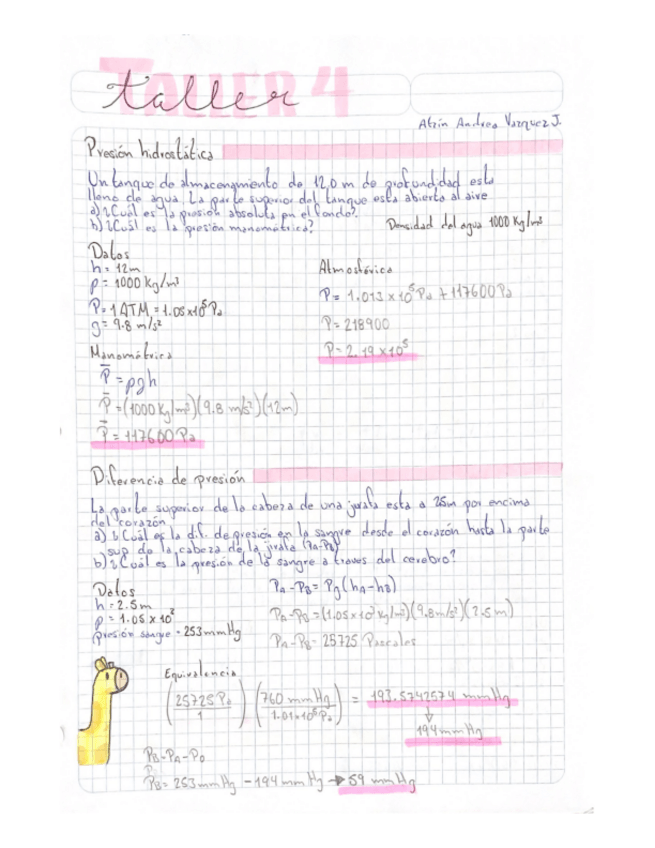 TALLER 4
taller
Atzin Andrea Vazquez J.
Presión hidrostática
Un tanque de almacenamiento de 12.0 m de profundidad esta
lleno de agua. La parte superior del tanque esta abierto al aire
a) ¿Cuál es la presion absoluta en el fondo?.
b) ¿Cuál es la presión manometrica?
Densidad del agua 1000 Kg/m³
Datos
h= 12m
ρ= 1000 Kg/m³
P= 1 ATM = 1.05 x10⁵ Pa
g= 9.8 m/s²
Atmosférica
P= 1.013 x 10⁵ Pa + 117600 Pa
P= 218900
P= 2.19 x10⁵
Manométrica
P = ρgh
P = (1000 Kg/m³)(9.8 m/s²)(12m)
P = 117600 Pa
Diferencia de presión
La parte superior de la cabeza de una jirafa esta a 25m por encima
del corazón
a) ¿Cuál es la dif. de presión en la sangre desde el corazón hasta la parte
sup de la cabeza de la jirafa (PA-PB)
b) ¿Cuál es la presión de la sangre a traves del cerebro?
Datos
h= 2.5m
ρ= 1.05 x 10³
presión sangre = 253 mmHg
PA-PB= Pg(hA-hB)
PA-PB=(1.05x10³ kg/m³)(9.8m/s²)(2.5m)
PA-PB= 25725 Pascales
Equivalencia
(25725 Pa / 1) (760 mm Hg / 1.01x10⁵ Pa) = 193.5742574 mmHg
↓
194 mmHg
PB=PA-PD
PB= 253 mm Hg - 194 mm Hg → 59 mmHg